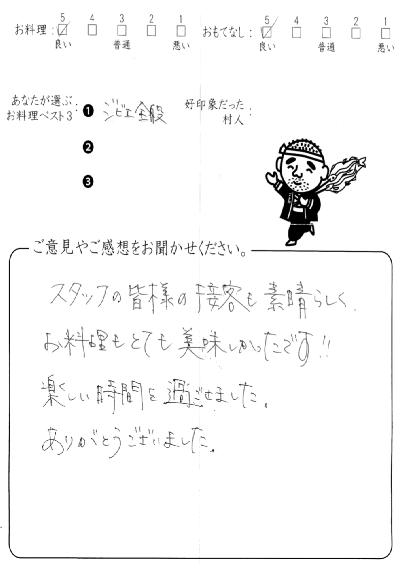 お料理: 5 4 3 2 1 おもてなし: 5 4 3 2 1
良い 普通 悪い 良い 普通 悪い
あなたが選ぶ
お料理ベスト3: ❶ ジビエ全般 好印象だった
村人:
❷
❸
ご意見やご感想をお聞かせください。
スタッフの皆様の接客も素晴らしく、
お料理もとても美味しかったです!!
楽しい時間を過ごせました。
ありがとうございました。